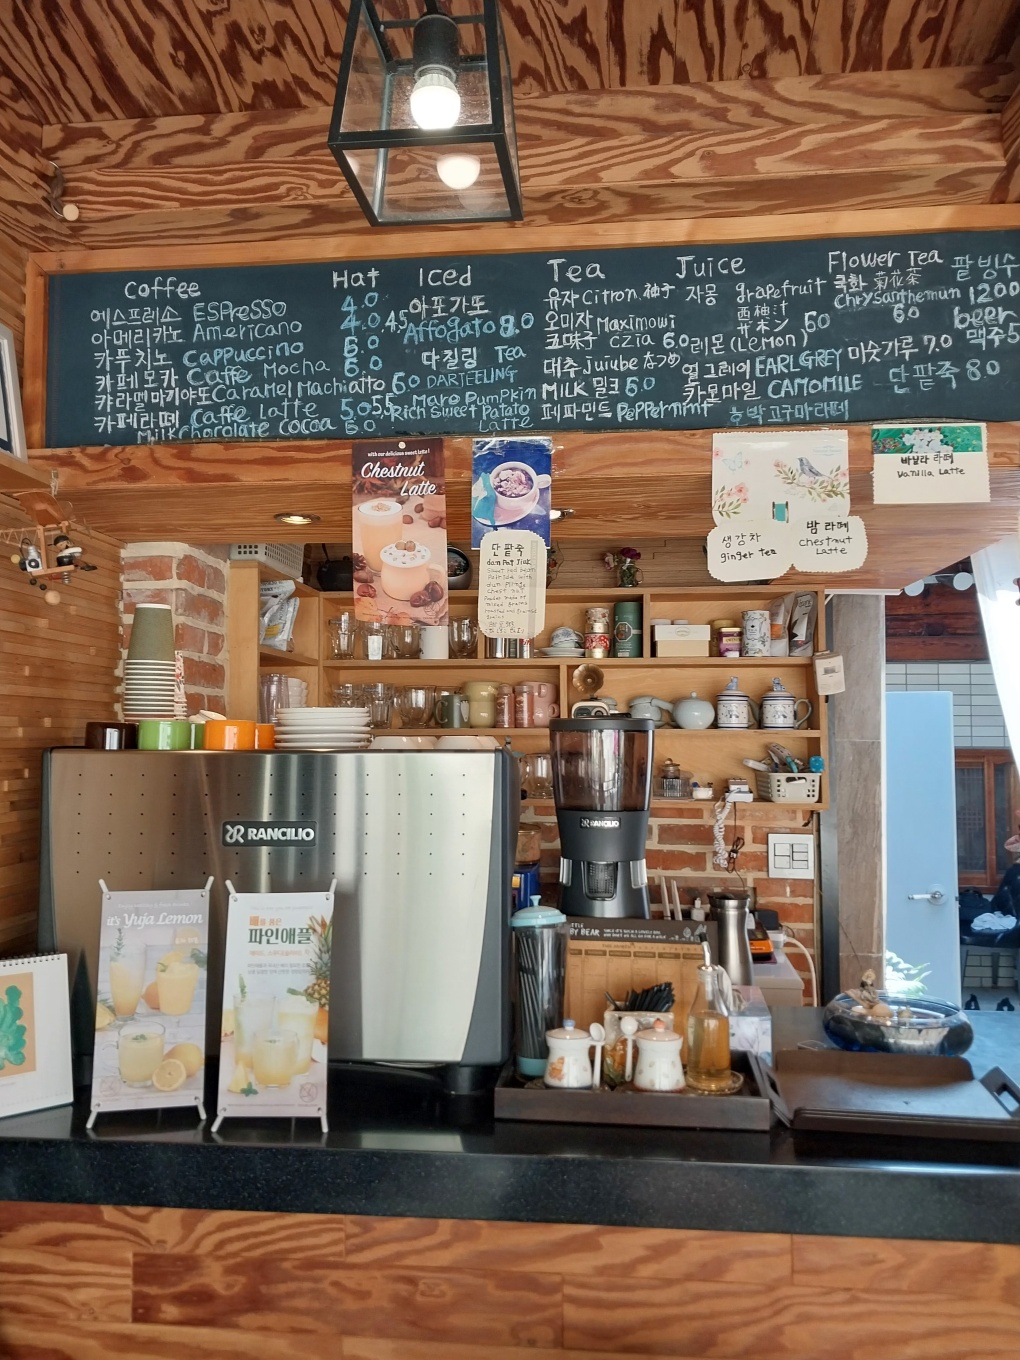 Coffee
에스프레소 ESPresso 4.0
아메리카노 Americano 4.0 4.5
카푸치노 Cappuccino 5.0
카페모카 Caffe Mocha 6.0
카라멜마키야또 Caramel Machiatto 6.0
카페라떼 Caffe Latte 5.0 5.5
Milk chorolate cocoa 6.0
Hat
Iced
아포가또
Affogato 8.0
다질링 Tea
DARTEELING
Maro Pumpkin
Rich Sweet Potato
Latte
Tea
유자 Citron 柚子
오미자 Maximowi
五味子 czia 6.0
대추 juiube なつめ
MILK 밀크 6.0
페파민트 Peppermint
Juice
자몽 grapefruit
西柚汁
ザボン 6.0
레몬 (Lemon)
얼그레이 EARL GREY
카모마일 CAMOMILE
호박고구마라떼
Flower Tea
국화 菊花茶
Chrysanthemun
6.0
미숫가루 7.0
단팥죽 8.0
팥빙수
1200
beer
맥주5
with our delicious sweet latte!
Chestnut
Latte
단팥죽
dan Pat Juk
생강차
ginger tea
밤 라떼
chestnut
Latte
바닐라 라떼
Vanilla Latte
RANCILIO
RANCILIO
it's Yuja Lemon
파인애플
BY BEAR